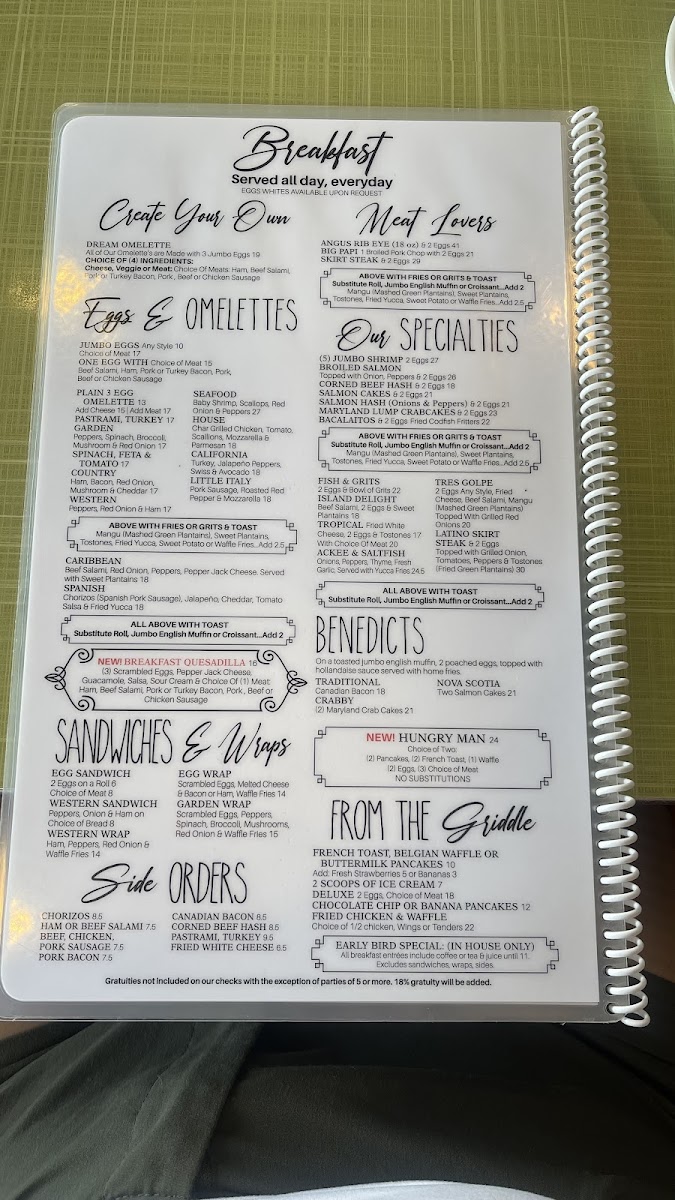 Breakfast
Served all day, everyday
EGGS WHITES AVAILABLE UPON REQUEST
Create Your Own
DREAM OMELETTE
All of Our Omelette's are Made with 3 Jumbo Eggs 19
CHOICE OF (4) INGREDIENTS:
Cheese, Veggie or Meat: Choice Of Meats: Ham, Beef Salami,
Pork or Turkey Bacon, Pork , Beef or Chicken Sausage
Eggs & OMELETTES
JUMBO EGGS Any Style 10
Choice of Meat 17
ONE EGG WITH Choice of Meat 15
Beef Salami, Ham, Pork or Turkey Bacon, Pork,
Beef or Chicken Sausage
PLAIN 3 EGG
OMELETTE 13
Add Cheese 15 | Add Meat 17
PASTRAMI, TURKEY 17
GARDEN
Peppers, Spinach, Broccoli,
Mushroom & Red Onion 17
SPINACH, FETA &
TOMATO 17
COUNTRY
Ham, Bacon, Red Onion,
Mushroom & Cheddar 17
WESTERN
Peppers, Red Onion & Ham 17
SEAFOOD
Baby Shrimp, Scallops, Red
Onion & Peppers 27
HOUSE
Char Grilled Chicken, Tomato,
Scallions, Mozzarella &
Parmesan 18
CALIFORNIA
Turkey, Jalapeño Peppers,
Swiss & Avocado 18
LITTLE ITALY
Pork Sausage, Roasted Red
Pepper & Mozzarella 18
ABOVE WITH FRIES OR GRITS & TOAST
Mangu (Mashed Green Plantains), Sweet Plantains,
Tostones, Fried Yucca, Sweet Potato or Waffle Fries...Add 2.5
CARIBBEAN
Beef Salami, Red Onion, Peppers, Pepper Jack Cheese. Served
with Sweet Plantains 18
SPANISH
Chorizos (Spanish Pork Sausage), Jalapeño, Cheddar, Tomato
Salsa & Fried Yucca 18
ALL ABOVE WITH TOAST
Substitute Roll, Jumbo English Muffin or Croissant...Add 2
NEW! BREAKFAST QUESADILLA 16
(3) Scrambled Eggs, Pepper Jack Cheese,
Guacamole, Salsa, Sour Cream & Choice Of (1) Meat
Ham, Beef Salami, Pork or Turkey Bacon, Pork , Beef or
Chicken Sausage
SANDWICHES & Wraps
EGG SANDWICH
2 Eggs on a Roll 6
Choice of Meat 8
WESTERN SANDWICH
Peppers, Onion & Ham on
Choice of Bread 8
WESTERN WRAP
Ham, Peppers, Red Onion &
Waffle Fries 14
EGG WRAP
Scrambled Eggs, Melted Cheese
& Bacon or Ham, Waffle Fries 14
GARDEN WRAP
Scrambled Eggs, Peppers,
Spinach, Broccoli, Mushrooms,
Red Onion & Waffle Fries 15
Side ORDERS
CHORIZOS 8.5
HAM OR BEEF SALAMI 7.5
BEEF, CHICKEN,
PORK SAUSAGE 7.5
PORK BACON 7.5
CANADIAN BACON 8.5
CORNED BEEF HASH 8.5
PASTRAMI, TURKEY 9.5
FRIED WHITE CHEESE 6.5
Meat Lovers
ANGUS RIB EYE (18 oz) & 2 Eggs 41
BIG PAPI 1 Broiled Pork Chop with 2 Eggs 21
SKIRT STEAK & 2 Eggs 29
ABOVE WITH FRIES OR GRITS & TOAST
Substitute Roll, Jumbo English Muffin or Croissant...Add 2
Mangu (Mashed Green Plantains), Sweet Plantains,
Tostones, Fried Yucca, Sweet Potato or Waffle Fries...Add 2.5
Our SPECIALTIES
(5) JUMBO SHRIMP 2 Eggs 27
BROILED SALMON
Topped with Onion, Peppers & 2 Eggs 26
CORNED BEEF HASH & 2 Eggs 18
SALMON CAKES & 2 Eggs 21
SALMON HASH (Onions & Peppers) & 2 Eggs 21
MARYLAND LUMP CRABCAKES & 2 Eggs 23
BACALAITOS & 2 Eggs Fried Codfish Fritters 22
ABOVE WITH FRIES OR GRITS & TOAST
Substitute Roll, Jumbo English Muffin or Croissant...Add 2
Mangu (Mashed Green Plantains), Sweet Plantains,
Tostones, Fried Yucca, Sweet Potato or Waffle Fries...Add 2.5
FISH & GRITS
2 Eggs & Bowl of Grits 22
ISLAND DELIGHT
Beef Salami, 2 Eggs & Sweet
Plantains 18
TROPICAL Fried White
Cheese, 2 Eggs & Tostones 17
With Choice Of Meat 20
ACKEE & SALTFISH
Onions, Peppers, Thyme, Fresh
Garlic, Served with Yucca Fries 24.5
TRES GOLPE
2 Eggs Any Style, Fried
Cheese, Beef Salami, Mangu
(Mashed Green Plantains)
Topped With Grilled Red
Onions 20
LATINO SKIRT
STEAK & 2 Eggs
Topped with Grilled Onion,
Tomatoes, Peppers & Tostones
(Fried Green Plantains) 30
ALL ABOVE WITH TOAST
Substitute Roll, Jumbo English Muffin or Croissant...Add 2
BENEDICTS
On a toasted jumbo english muffin, 2 poached eggs, topped with
hollandaise sauce served with home fries.
TRADITIONAL
Canadian Bacon 18
CRABBY
(2) Maryland Crab Cakes 21
NOVA SCOTIA
Two Salmon Cakes 21
NEW! HUNGRY MAN 24
Choice of Two:
(2) Pancakes, (2) French Toast, (1) Waffle
(2) Eggs, (3) Choice of Meat
NO SUBSTITUTIONS
FROM THE Griddle
FRENCH TOAST, BELGIAN WAFFLE OR
BUTTERMILK PANCAKES 10
Add: Fresh Strawberries 5 or Bananas 3
2 SCOOPS OF ICE CREAM 7
DELUXE 2 Eggs, Choice of Meat 18
CHOCOLATE CHIP OR BANANA PANCAKES 12
FRIED CHICKEN & WAFFLE
Choice of 1/2 chicken, Wings or Tenders 22
EARLY BIRD SPECIAL: (IN HOUSE ONLY)
All breakfast entrées include coffee or tea & juice until 11.
Excludes sandwiches, wraps, sides.
Gratuities not included on our checks with the exception of parties of 5 or more. 18% gratuity will be added.